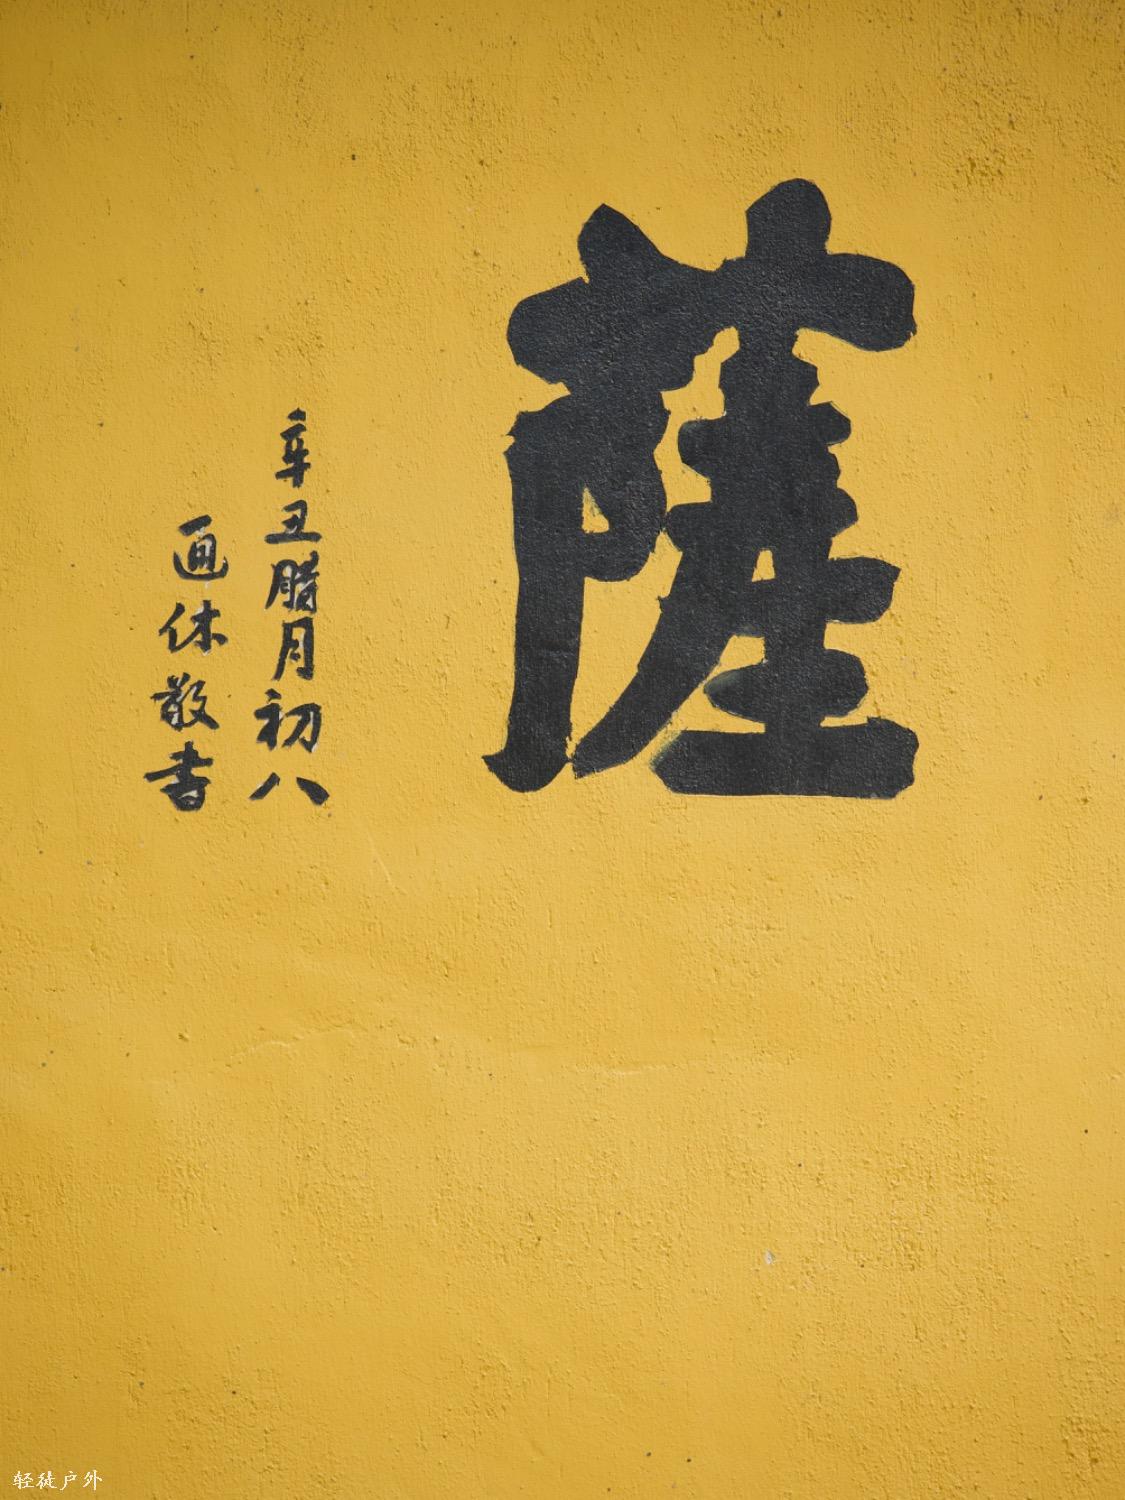 薩
辛丑腊月初八
通休敬书
轻徒户外